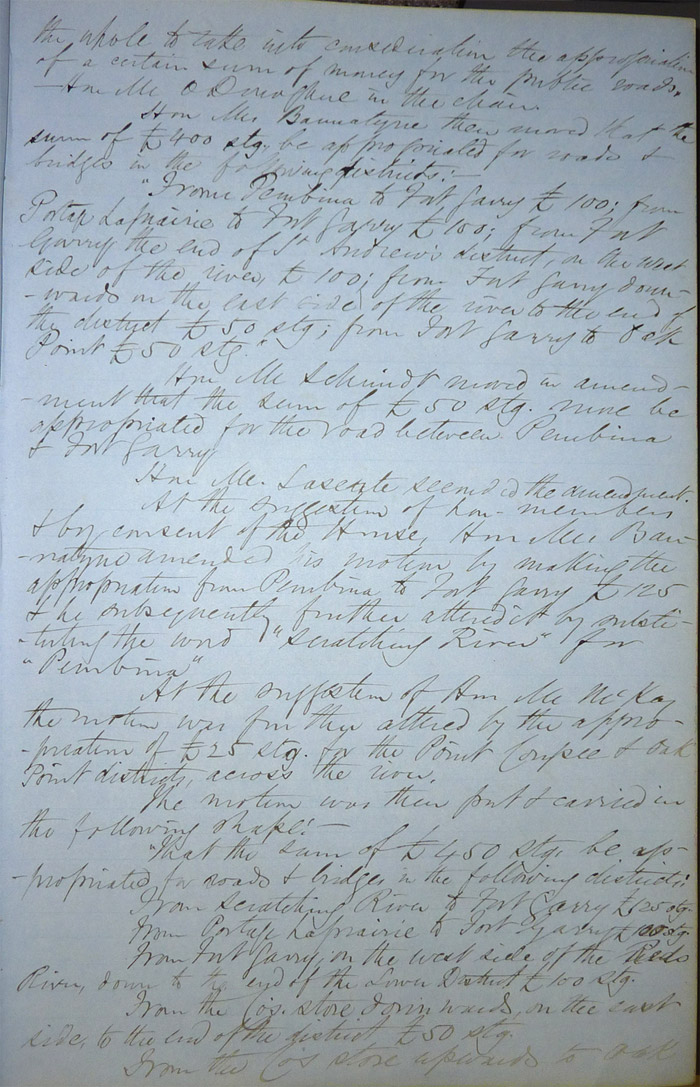 the whole to take into consideration the appropriation
of a certain sum of money for the public roads,
— Hon Mr O'Donoghue in the chair.
Hon Mr Bannatyne then moved that the
sum of £400 stg. be appropriated for roads &
bridges in the following districts: —
"From Pembina to Fort Garry £100; from
Portage Laprairie to Fort Garry £100; from Fort
Garry the end of St Andrew's district, on the west
side of the river, £100; from Fort Garry down-
-wards on the east side of the river to the end of
the district £50 stg; from Fort Garry to Oak
Point £50 stg."
Hon Mr Schmidt moved in amend-
-ment that the sum of £50 stg. more be
appropriated for the road between Pembina
& Fort Garry
Hon Mr. Lascerte seconded the amendment.
At the suggestion of hon- members
& by consent of the House, Hon Mr Ban-
-natyne amended his motion by making the
appropriation from Pembina to Fort Garry £125
& he subsequently further altered it by substi-
-tuting the word "Scratching River" for
"Pembina"
At the suggestion of Hon Mr McKay
the motion was further altered by the appro-
-priation of £25 stg. for the Point Coupee & Oak
Point districts, across the river.
The motion was then put & carried in
the following shape: —
"That the sum of £450 stg. be ap-
-propriated for roads & bridges in the following districts:
From Scratching River to Fort Garry £125 stg.
From Portage Laprairie to Fort Garry £100 stg.
From Fort Garry, on the west side of the Red
River, down to the end of the Lower District £100 stg.
From the Co's. store downwards, on the east
side, to the end of the district £50 stg.
From the Co's store upwards to Oak